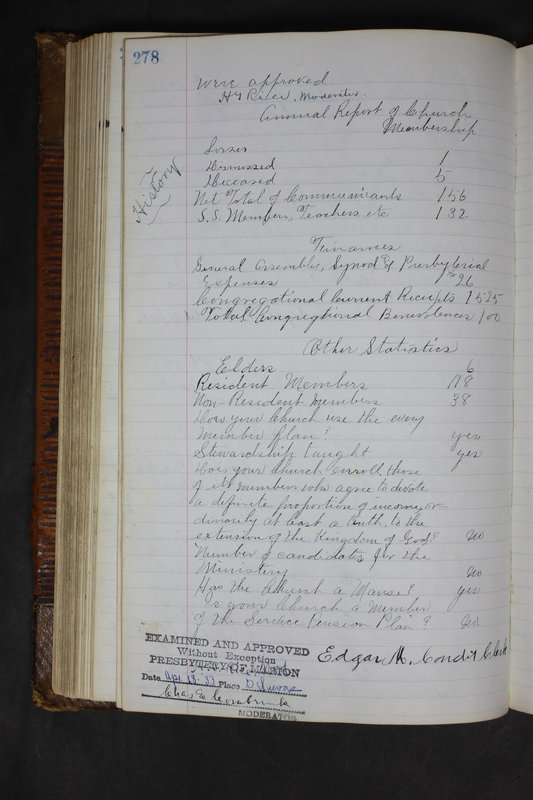 278
were approved
Hy Rice, Moderator.
Annual Report of Church
Membership
History
Losses
Dismissed 1
Deceased 5
Net Total of Communicants 156
S.S. Members, Teachers etc 132
Finances
General Assembly, Synod & Presbyterial
Expenses $26
Congregational Current Receipts 1525
Total Congregtional Benevolences 100
Other Statistics
Elders 6
Resident Members 118
Non-Resident members 38
Does your Church use the every
member plan? yes
Stewardship Taught yes
Does your Church enroll those
of its members who agree to devote
a definite proportion of income, or
dinarily at least a tenth, to the
extension of the Kingdom of God? No
Number of candidates for the
Ministery No
Has the Church a Manse? yes
Is your Church a member
of the Service Pension Plan? No
Edgar H. Condit Clerk
EXAMINED AND APPROVED
Without Exception
PRESBYTERY OF MARION
Date Apr 18-33 Place Delaware
MODERATOR